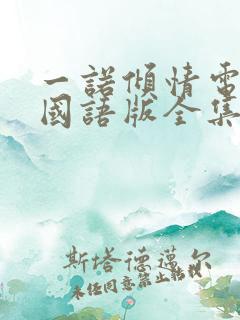 一諾傾情電
國語版全集
斯塔德邁尔
未经同意禁止转载